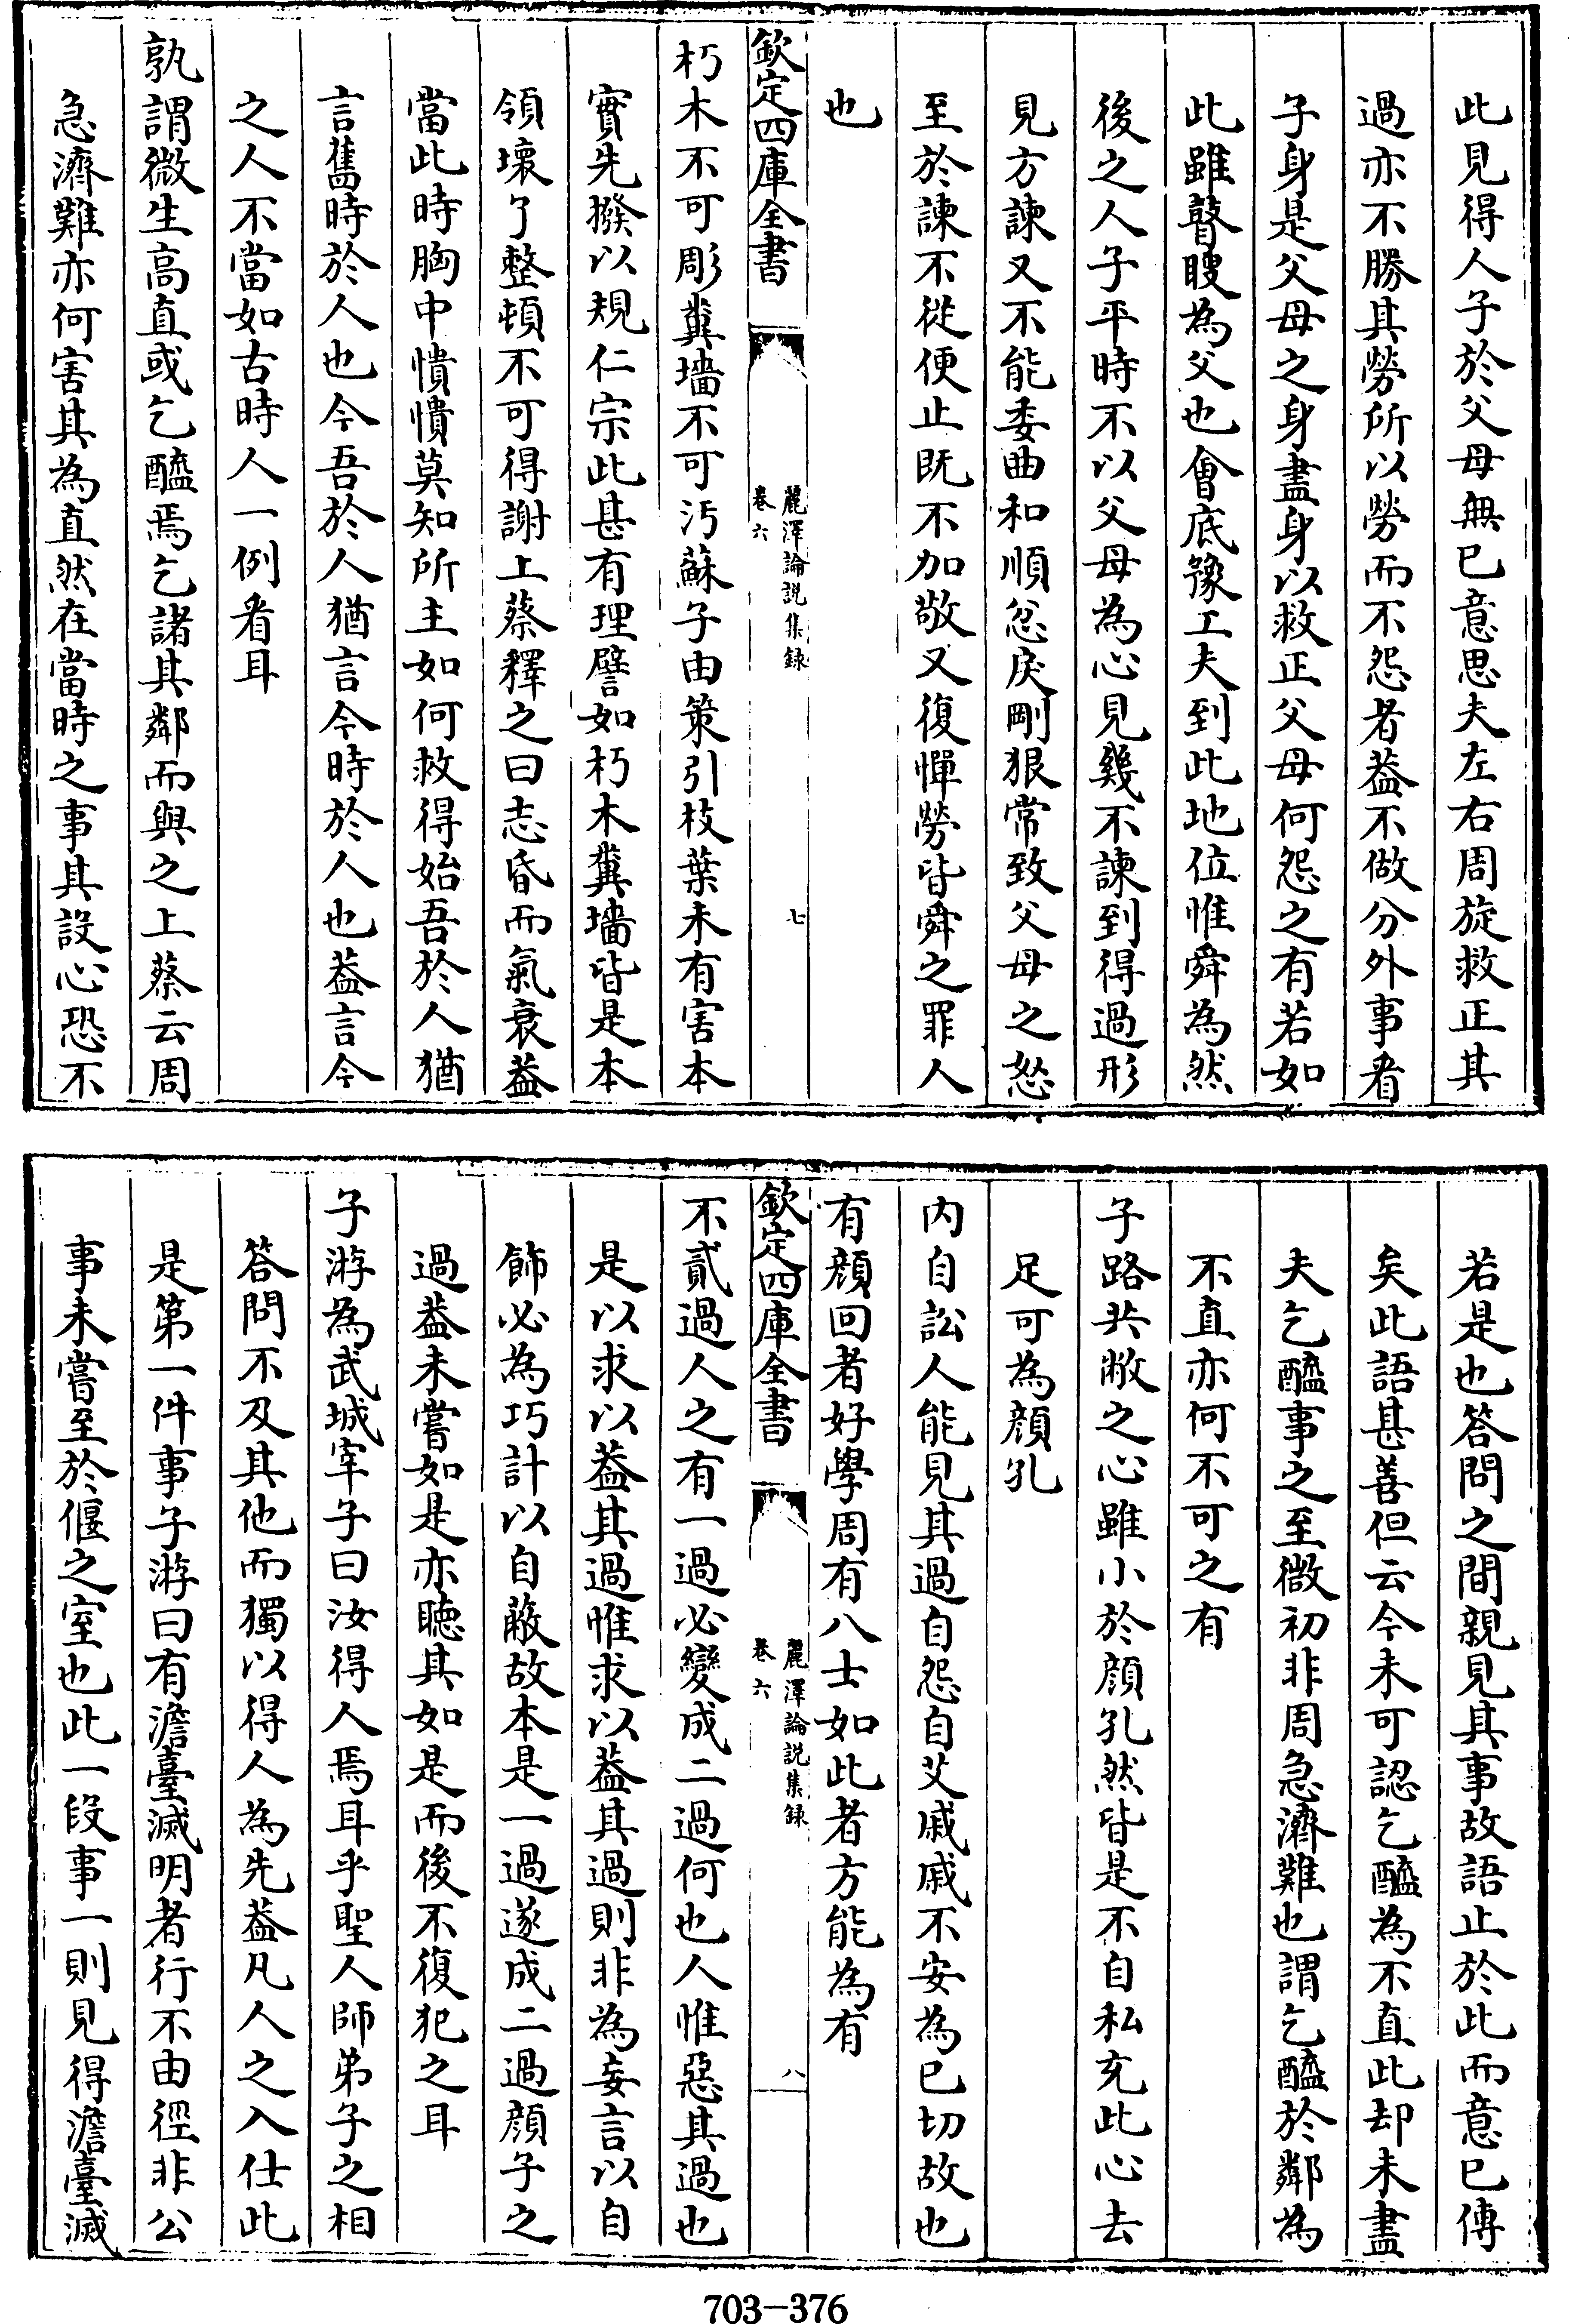 此見得人子於父母無已意思夫左右周旋救正其
過亦不勝其勞所以勞而不怨者葢不做分外事看
子身是父母之身盡身以救正父母何怨之有若如
此雖瞽瞍為父也會底豫工夫到此地位惟舜為然
後之人子平時不以父母為心見幾不諫到得過形
見方諫又不能委曲和順忿戾剛狠常致父母之怒
至於諫不從便止既不加敬又復憚勞皆舜之罪人
也
欽定四庫全書
麗澤論説集録
卷六
七
朽木不可彫糞墻不可汚蘇子由策引枝葉未有害本
實先撥以規仁宗此甚有理譬如朽木糞墻皆是本
領壞了整頓不可得謝上蔡釋之曰志昏而氣衰葢
當此時胸中憒憒莫知所主如何救得始吾於人猶
言舊時於人也今吾於人猶言今時於人也葢言今
之人不當如古時人一例看耳
孰謂微生高直或乞醯焉乞諸其鄰而與之上蔡云周
急濟難亦何害其為直然在當時之事其設心恐不
若是也答問之間親見其事故語止於此而意已傳
矣此語甚善但云今未可認乞醯為不直此却未盡
夫乞醯事之至微初非周急濟難也謂乞醯於鄰為
不直亦何不可之有
子路共敝之心雖小於顔孔然皆是不自私充此心去
足可為顔孔
内自訟人能見其過自怨自艾戚戚不安為已切故也
有顔回者好學周有八士如此者方能為有
欽定四庫全書
麗澤論説集録
卷六
八
不貳過人之有一過必變成二過何也人惟惡其過也
是以求以葢其過惟求以葢其過則非為妄言以自
飾必為巧計以自蔽故本是一過遂成二過顔子之
過葢未嘗如是亦聽其如是而後不復犯之耳
子游為武城宰子曰汝得人焉耳乎聖人師弟子之相
答問不及其他而獨以得人為先葢凡人之入仕此
是第一件事子游曰有澹臺滅明者行不由徑非公
事未嘗至於偃之室也此一段事一則見得澹臺滅
703-376